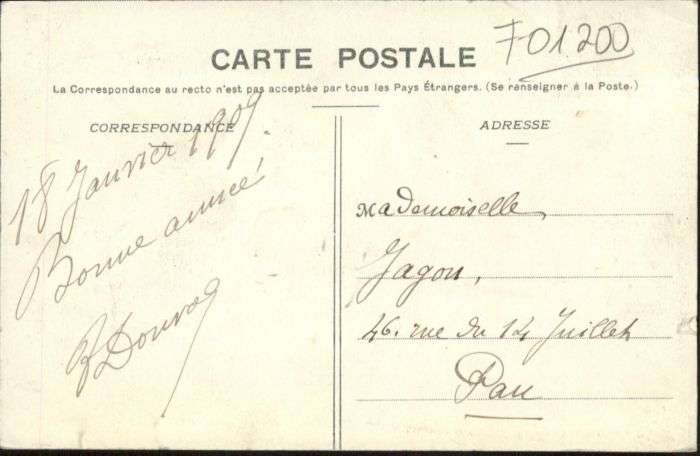 F01200
CARTE POSTALE
La Correspondance au recto n'est pas acceptée par tous les Pays Étrangers. (Se renseigner à la Poste.)
CORRESPONDANCE
18 Janvier 1909.
Bonne année!
ADRESSE
Mademoiselle
Jagou,
46. rue du 14 Juillet
Pau